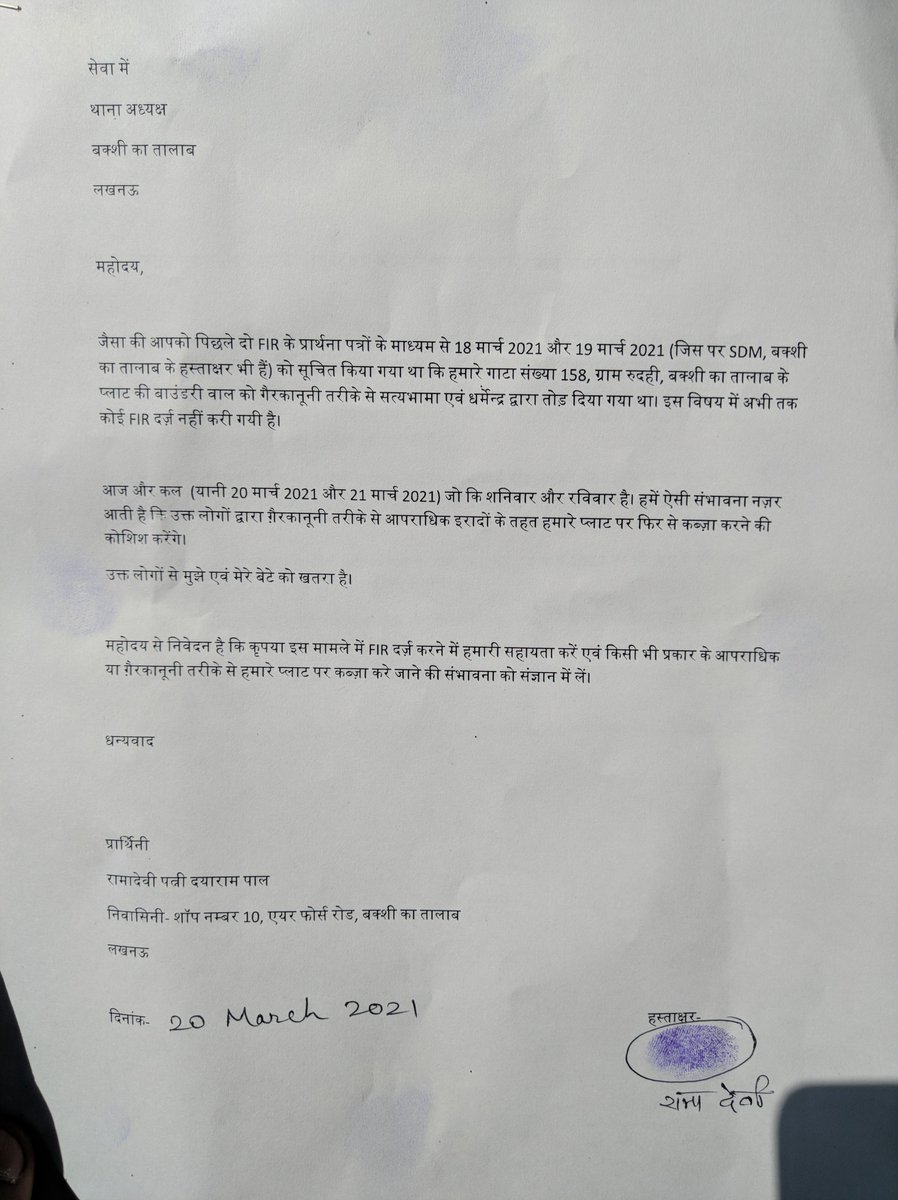 सेवा में
थाना अध्यक्ष
बक्शी का तालाब
लखनऊ
महोदय,
जैसा की आपको पिछले दो FIR के प्रार्थना पत्रों के माध्यम से 18 मार्च 2021 और 19 मार्च 2021 (जिस पर SDM, बक्शी
का तालाब के हस्ताक्षर भी हैं) को सूचित किया गया था कि हमारे गाटा संख्या 158, ग्राम रुदही, बक्शी का तालाब के
प्लाट की बाउंडरी वाल को गैरकानूनी तरीके से सत्यभामा एवं धर्मेन्द्र द्वारा तोड़ दिया गया था। इस विषय में अभी तक
कोई FIR दर्ज़ नहीं करी गयी है।
आज और कल (यानी 20 मार्च 2021 और 21 मार्च 2021) जो कि शनिवार और रविवार है। हमें ऐसी संभावना नज़र
आती है कि उक्त लोगों द्वारा ग़ैरकानूनी तरीके से आपराधिक इरादों के तहत हमारे प्लाट पर फिर से कब्ज़ा करने की
कोशिश करेंगे।
उक्त लोगों से मुझे एवं मेरे बेटे को खतरा है।
महोदय से निवेदन है कि कृपया इस मामले में FIR दर्ज़ करने में हमारी सहायता करें एवं किसी भी प्रकार के आपराधिक
या ग़ैरकानूनी तरीके से हमारे प्लाट पर कब्ज़ा करे जाने की संभावना को संज्ञान में लें।
धन्यवाद
प्रार्थिनी
रामादेवी पत्नी दयाराम पाल
निवासिनी- शॉप नम्बर 10, एयर फोर्स रोड, बक्शी का तालाब
लखनऊ
दिनांक- 20 March 2021
हस्ताक्षर-
रामा देवी